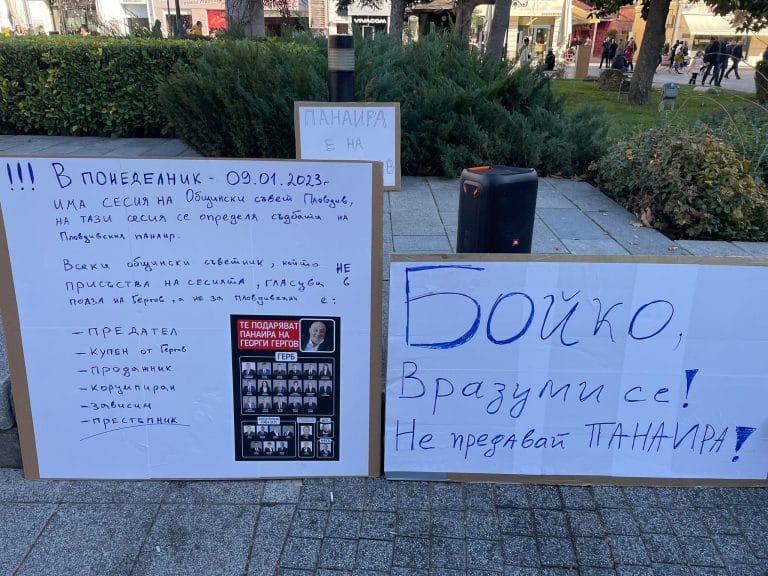 VIVACOM
ПАНАИРА
Е НА
!!! В ПОНЕДЕЛНИК - 09.01.2023г
ИМА СЕСИЯ НА ОБЩИНСКИ СЪВЕТ ПЛОВДИВ,
НА ТАЗИ СЕСИЯ СЕ ОПРЕДЕЛЯ СЪДБАТА НА
ПЛОВДИВСКИЯ ПАНАИР.
ВСЕКИ ОБЩИНСКИ СЪВЕТНИК, КОЙТО НЕ
ПРИСЪСТВА НА СЕСИЯТА, ГЛАСУВА В
ПОЛЗА НА ГЕРГОВ, А НЕ ЗА ПЛОВДИВЧАНИ Е:
- ПРЕДАТЕЛ
- КУПЕН ОТ ГЕРГОВ
- ПРОДАЖНИК
- КОРУМПИРАН
- ЗАВИСИМ
- ПРЕСТЕПНИК
ТЕ ПОДАРЯВАТ
ПАНАИРА НА
ГЕОРГИ ГЕРГОВ
ГЕРБ
JBL
БОЙКО,
Вразуми се!
Не предавай ПАНАИРА!